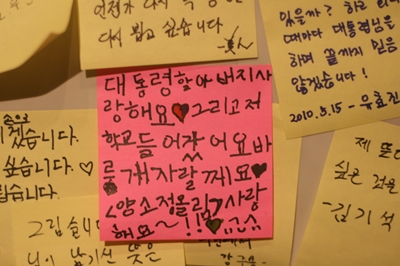 언젠가 다시
다시 뵙고 싶습니다
있을까?
때마다 대통령님을
하며 끝까지 믿음
않겠습니다!
2010.5.15 - 우효진
대통령할아버지사
랑해요♥그리고저
학교들어갔어요바
르게자랄께요♥
<양소정올림>사랑
해요~!!♥
겠습니다.
싶습니다.♡
립니다.
그립습니
님이 남기신 뜻은
제
싶은
-김기석